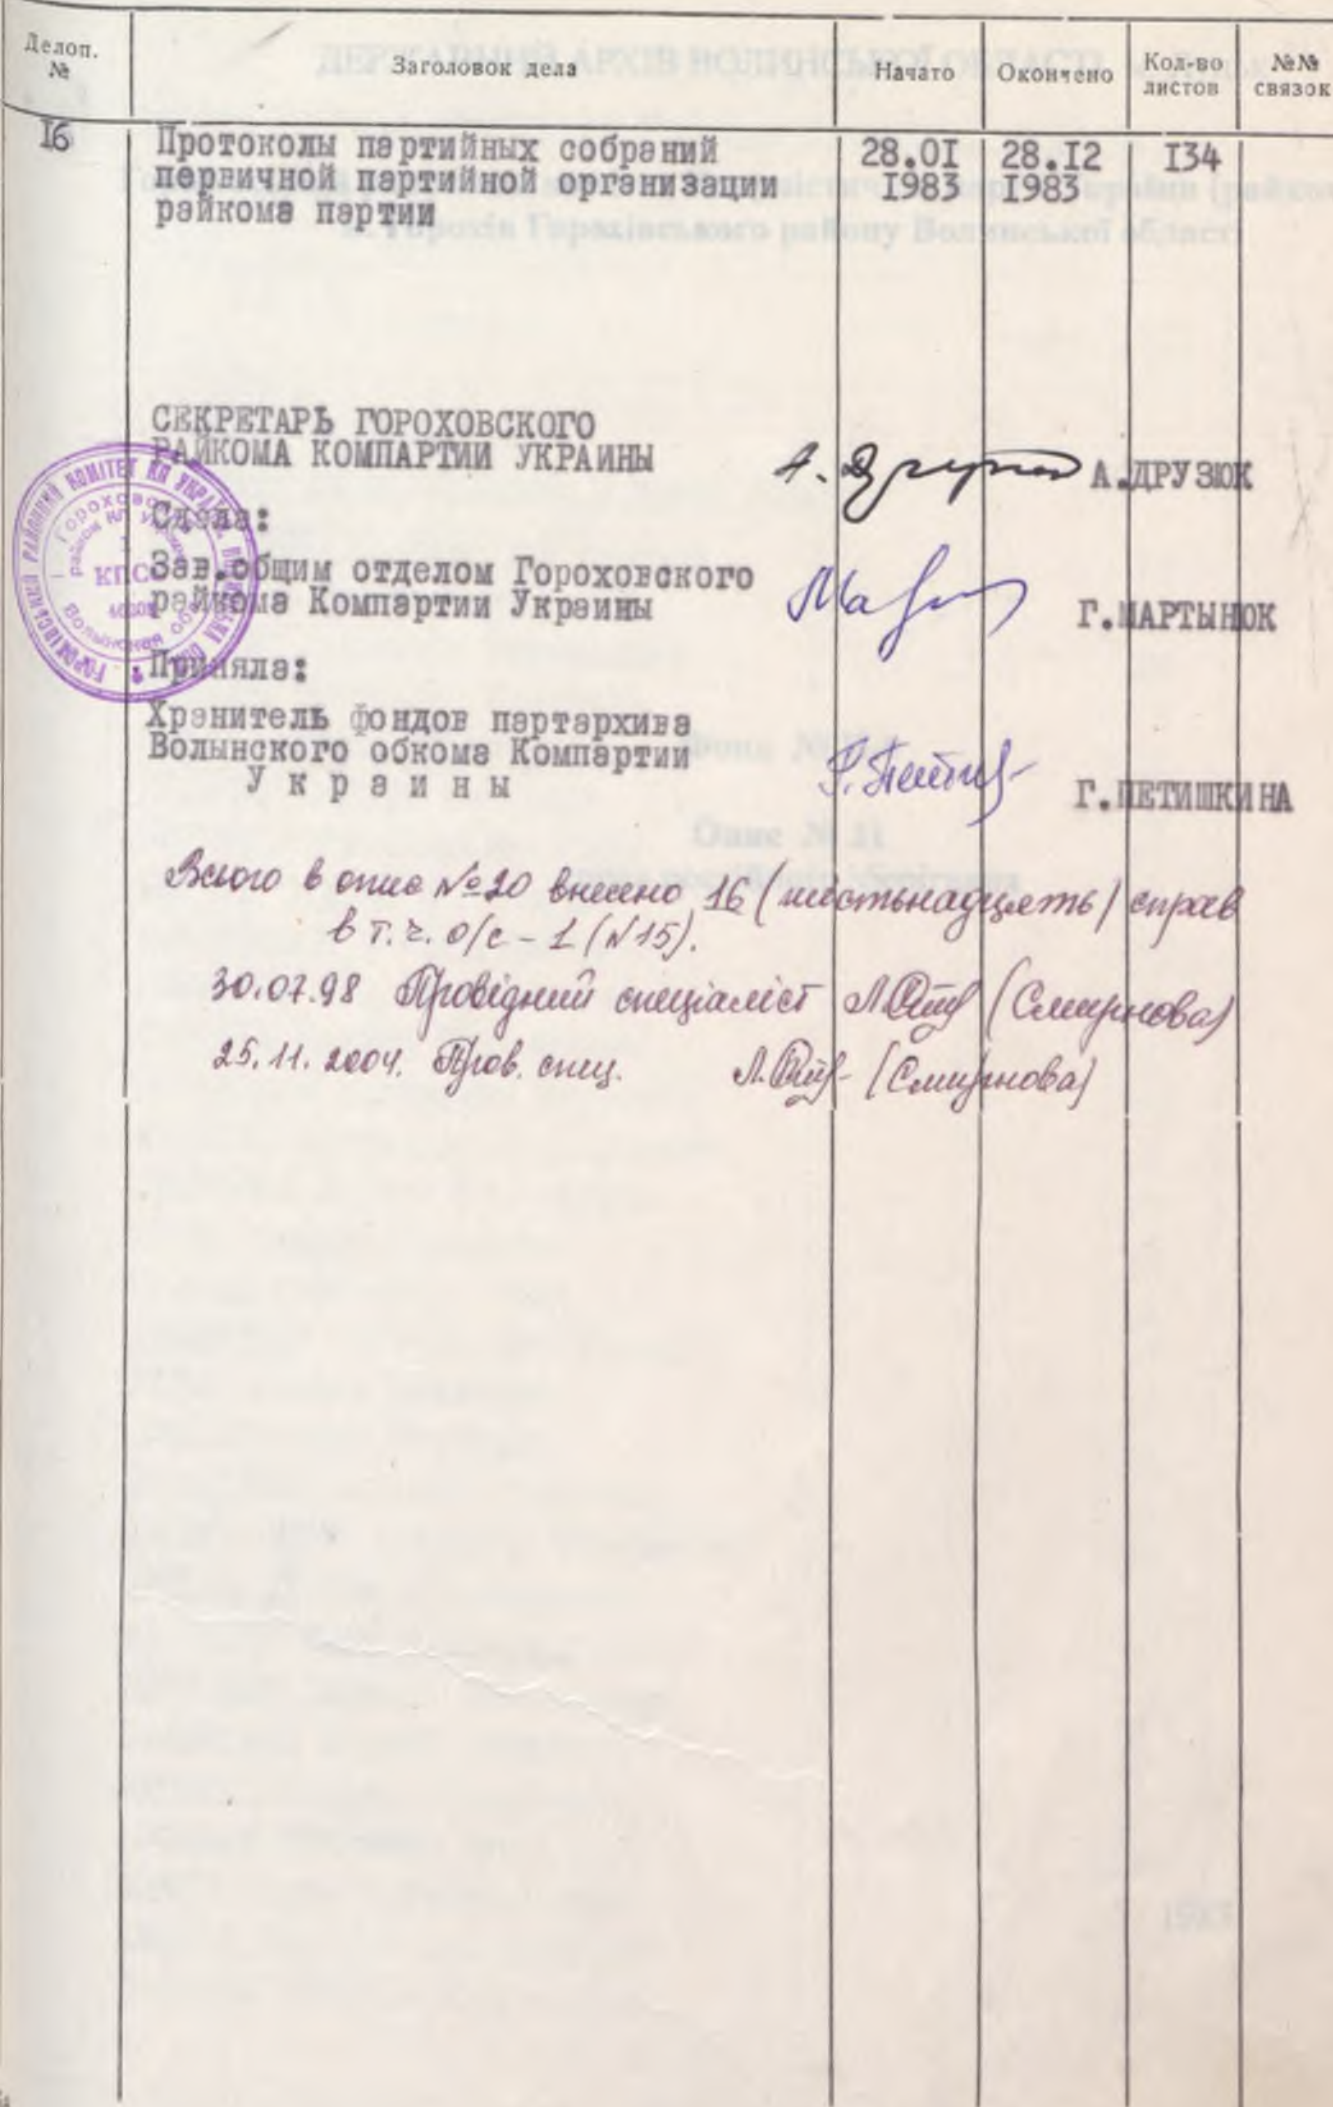 Делоп. № Заголовок дела Начато Окончено Кол-во листов №№ связок
16 Протоколы партийных собраний 28.01 28.12 134
первичной партийной организации 1983 1983
райкома партии
СЕКРЕТАРЬ ГОРОХОВСКОГО
РАЙКОМА КОМПАРТИИ УКРАИНЫ А.ДРУЗЮК
Сдала:
Зав.общим отделом Гороховского
райкома Компартии Украины Г.МАРТЫНЮК
Приняла:
Хранитель фондов партархива
Волынского обкома Компартии
Украины Г.ПЕТИШКИНА
Всього в опис №20 внесено 16 (шістьнадцять) справ
в т.ч. о/с - 1 (№15).
30.07.98 Провідний спеціаліст (Смирнова)
25.11.2004. Пров. спец. (Смирнова)